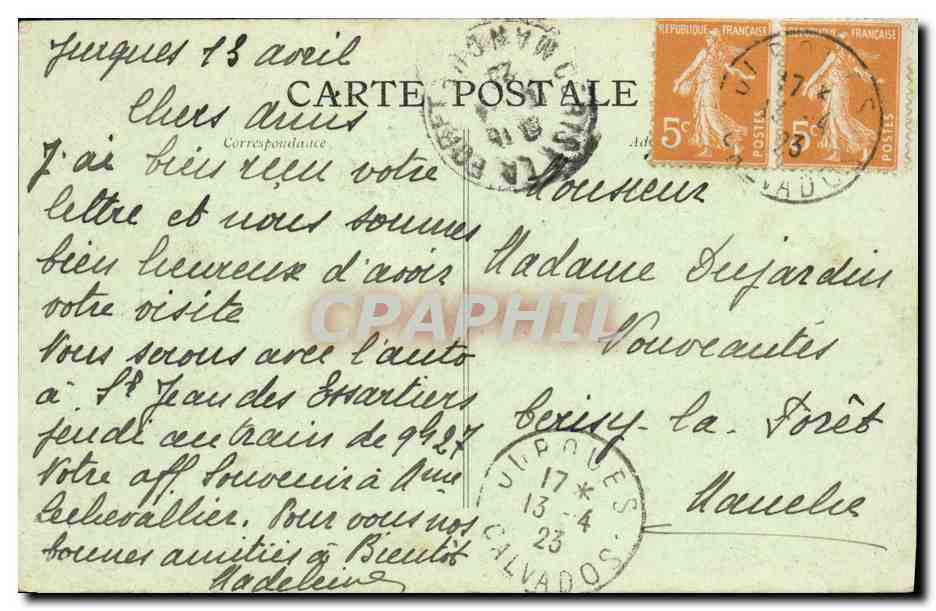 Jurques 13 avril
Chers amis
J'ai bien reçu votre
lettre et nous sommes
bien heureux d'avoir
votre visite
Nous serons avec l'auto
à St Jean des Essartiers
jeudi au train de 9h27
Notre aff souvenir à Mme
Lechevallier. Pour vous nos
bonnes amitiés à Bientôt
Madeleine
CARTE POSTALE
Correspondance
Monsieur
Madame Dujardin
Nouveautés
Cerisy-la-Forêt
Manche
REPUBLIQUE FRANÇAISE
5c POSTES
REPUBLIQUE FRANÇAISE
5c POSTES
JURQUES
17 *
13 - 4
23
CALVADOS
JURQUES
17 *
4
23
CALVADOS
CERISY LA FORET
MANCHE
CPAPHIL